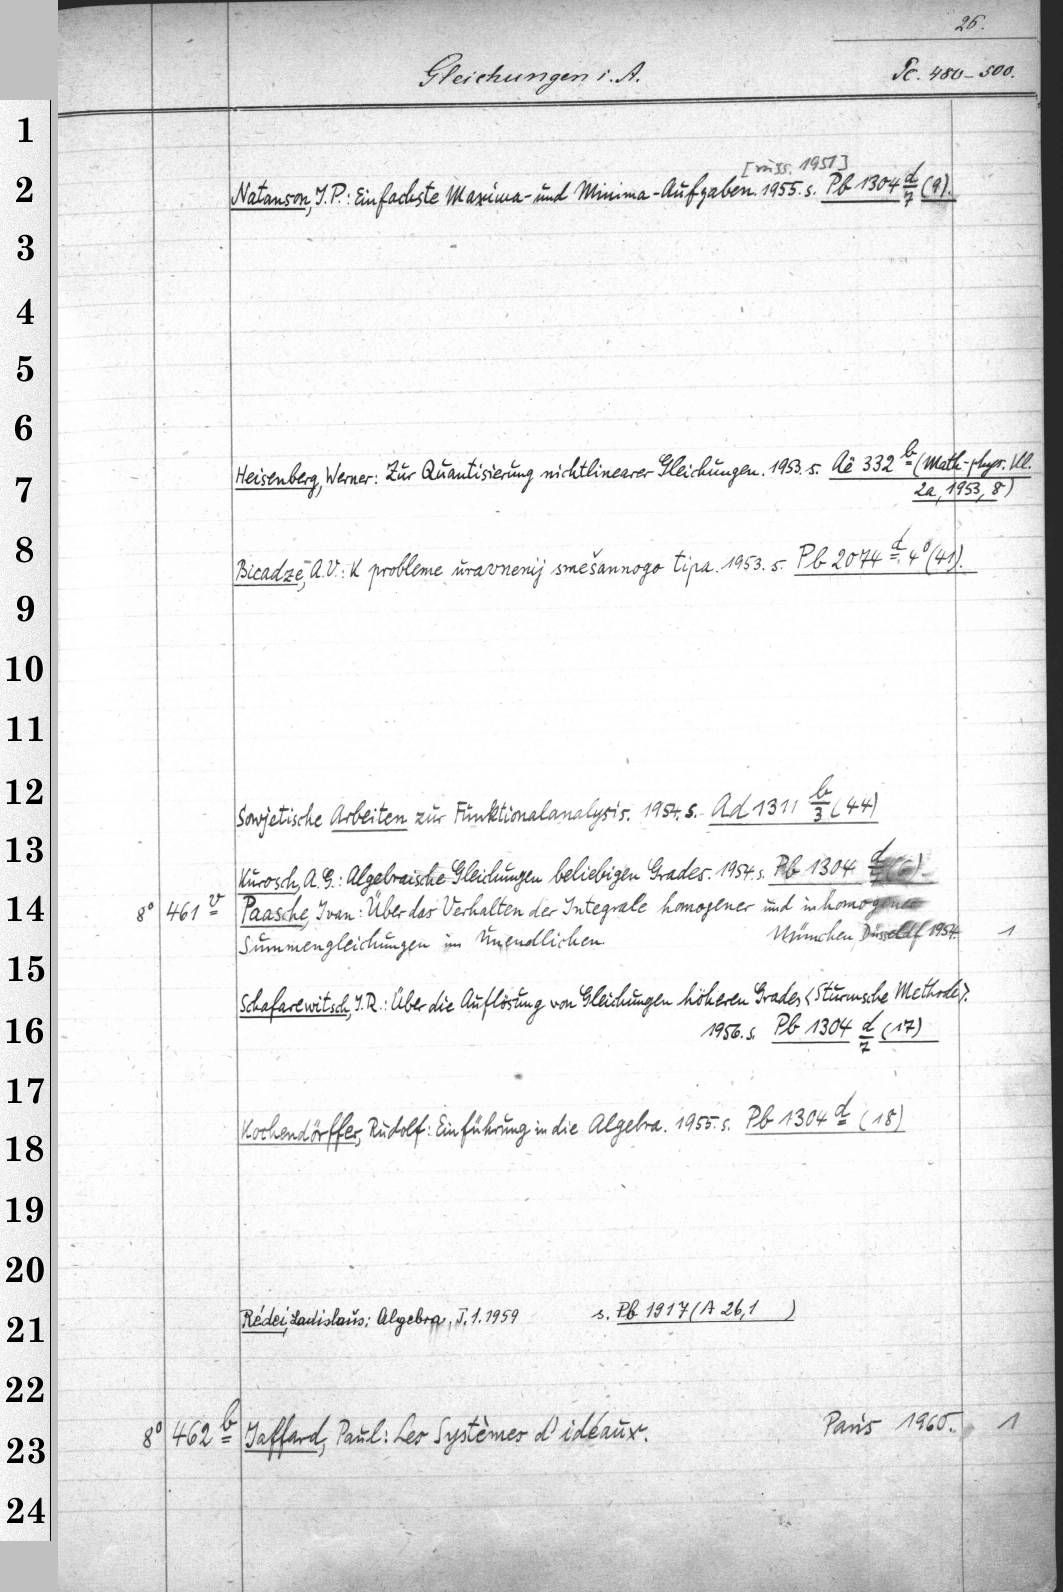 26.
Gleichungen i. A. Pc. 480-500.
1
[russ. 1951]
2 Natanson, I.P.: Einfachste Maxima- und Minima-Aufgaben. 1955. s. Pb 1304 d/7 (9).
3
4
5
6
7 Heisenberg, Werner: Zur Quantisierung nichtlinearer Gleichungen. 1953. s. Aê 332 b (Math-phys. Kl.
2a, 1953, 8)
8 Bicadze, A.V.: K probleme uravnenij smešannogo tipa. 1953. s. Pb 2074 d. 4° (41).
9
10
11
12 Sowjetische Arbeiten zur Funktionalanalysis. 1954. s. Ad 1311 b/3 (44)
13 Kurosch, A.G.: Algebraische Gleichungen beliebigen Grades. 1954. s. Pb 1304 d
14 8° 461 v Paasche, Ivan: Über das Verhalten der Integrale homogener und inhomogener
Summengleichungen im Unendlichen München, 1954. 1
15 Schafarewitsch, I.R.: Über die Auflösung von Gleichungen höheren Grades <Sturmsche Methode>.
16 1956. s. Pb 1304 d/7 (17)
17
18 Kochendörffer, Rudolf: Einführung in die Algebra. 1955. s. Pb 1304 d (18)
19
20
21 Rédei, Ladislaus: Algebra. T. 1. 1959 s. Pb 1917 (A 26,1 )
22
23 8° 462 b Jaffard, Paul: Les Systèmes d'idéaux. Paris 1960. 1
24